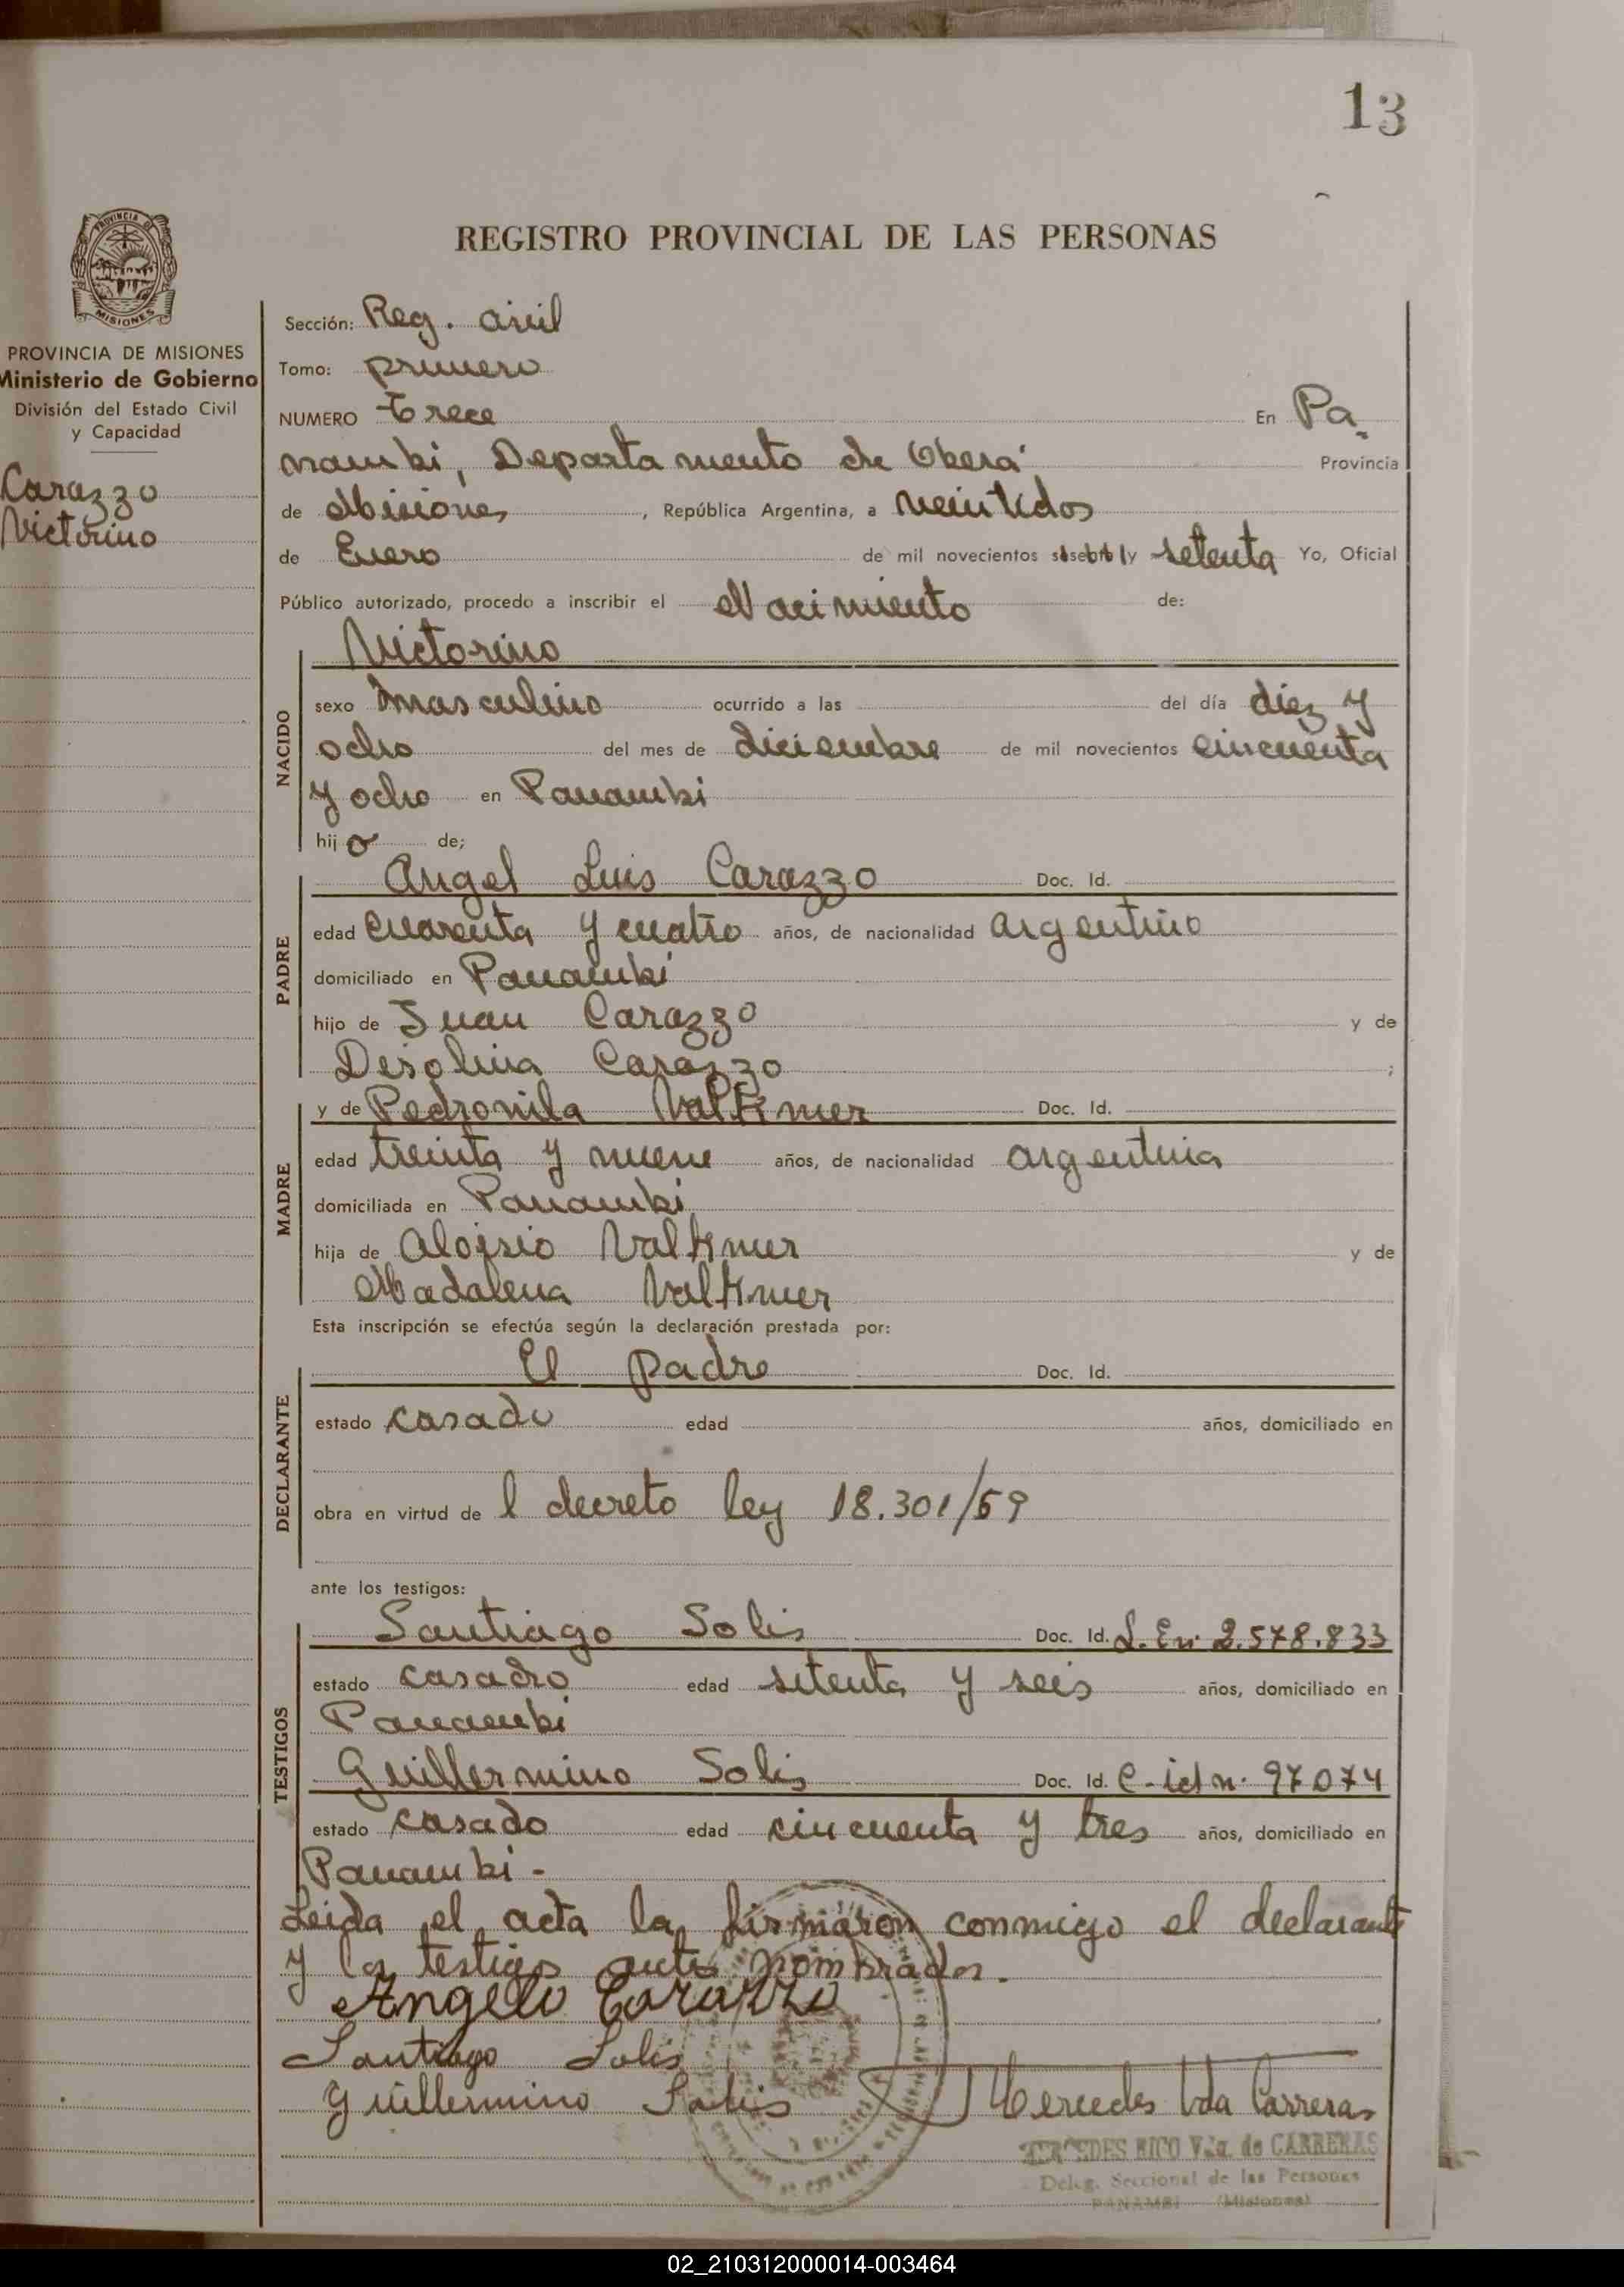 13
REGISTRO PROVINCIAL DE LAS PERSONAS
PROVINCIA DE
MISIONES
PROVINCIA DE MISIONES
Ministerio de Gobierno
División del Estado Civil
y Capacidad
Carazzo
Victorino
Sección: Reg. civil
Tomo: primero
NUMERO Trece En Pa-
nambi, Departamento de Oberá Provincia
de Misiones, República Argentina, a veintidos
de Enero de mil novecientos y setenta Yo, Oficial
Público autorizado, procedo a inscribir el Nacimiento de:
Victorino
NACIDO
sexo masculino ocurrido a las del día diez y
ocho del mes de diciembre de mil novecientos cincuenta
y ocho en Panambi
hijo de;
Angel Luis Carazzo Doc. Id.
PADRE
edad cuarenta y cuatro años, de nacionalidad argentino
domiciliado en Panambi
hijo de Juan Carazzo y de
Desolina Carazzo ;
y de Pedronila Valtmer Doc. Id.
MADRE
edad treinta y nueve años, de nacionalidad argentina
domiciliada en Panambi
hija de Aloisio Valtmer y de
Madalena Valtmer
Esta inscripción se efectúa según la declaración prestada por:
El padre Doc. Id.
DECLARANTE
estado casado edad años, domiciliado en
obra en virtud de l decreto ley 18.301/69
ante los testigos:
Santiago Solis Doc. Id. L. En. 2.578.833
TESTIGOS
estado casado edad setenta y seis años, domiciliado en
Panambi
Guillermino Solis Doc. Id. C-id n. 97074
estado casado edad cincuenta y tres años, domiciliado en
Panambi -
Leida el acta la firmaron conmigo el declarante
y los testigos antes nombrados.
Angelo Carazzo
Santiago Solis
Guillermino Solis Mercedes Vda Carreras
MERCEDES RICO Vda. de CARRERAS
Deleg. Seccional de las Personas
PANAMBI (Misiones)
02_210312000014-003464